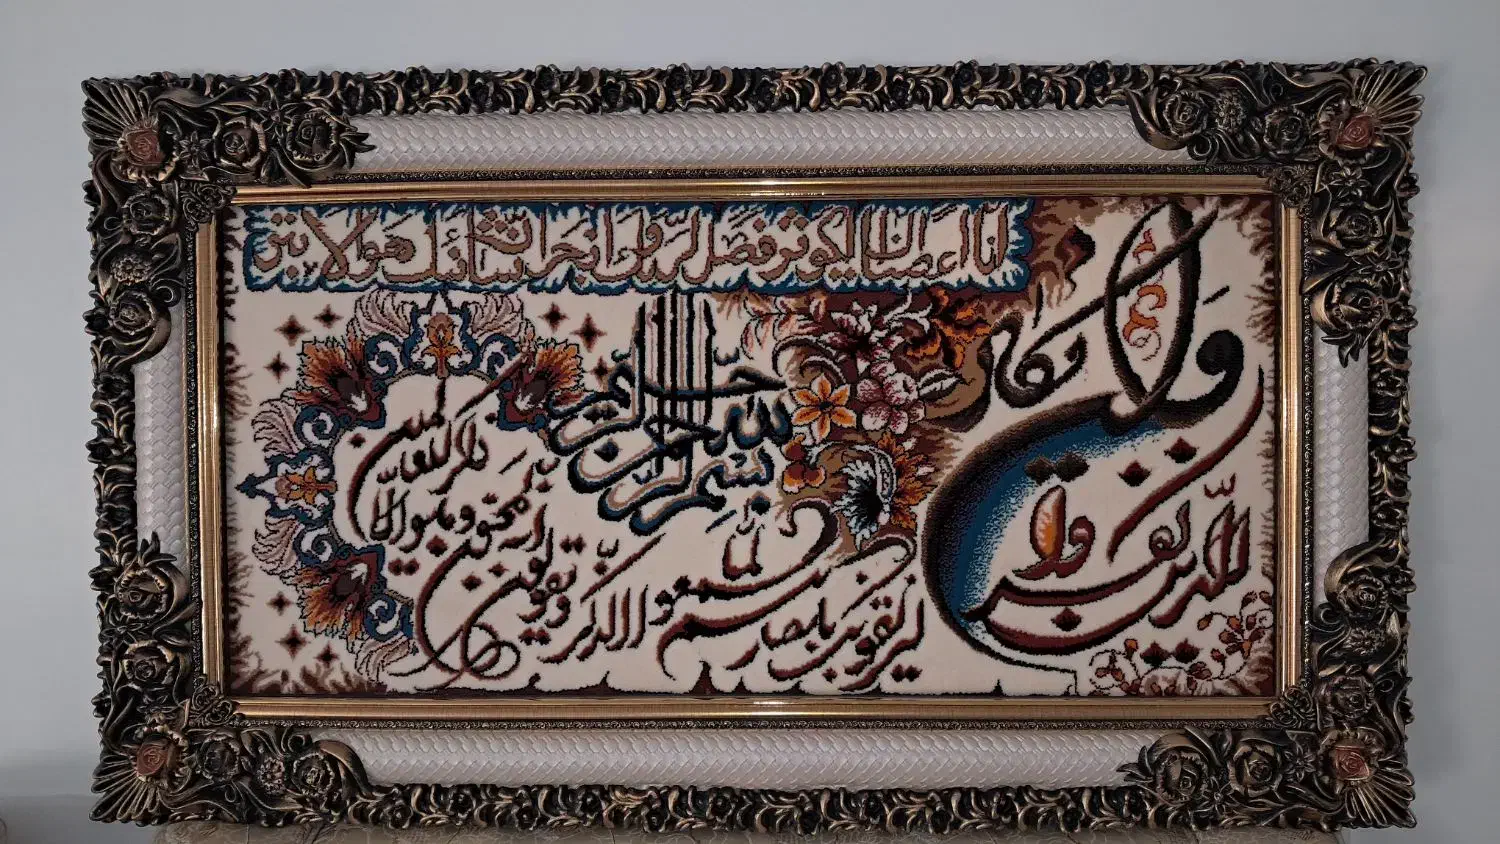 انا اعطیناک الکوثر فصل لربک وانحر ان شانئک هو الابتر
بسم الله الرحمن الرحیم
وان یکاد
الذین کفروا
لیزلقونک بابصارهم لما سمعوا الذکر
ویقولون انه لمجنون وما هو الا
ذکر للعالمین